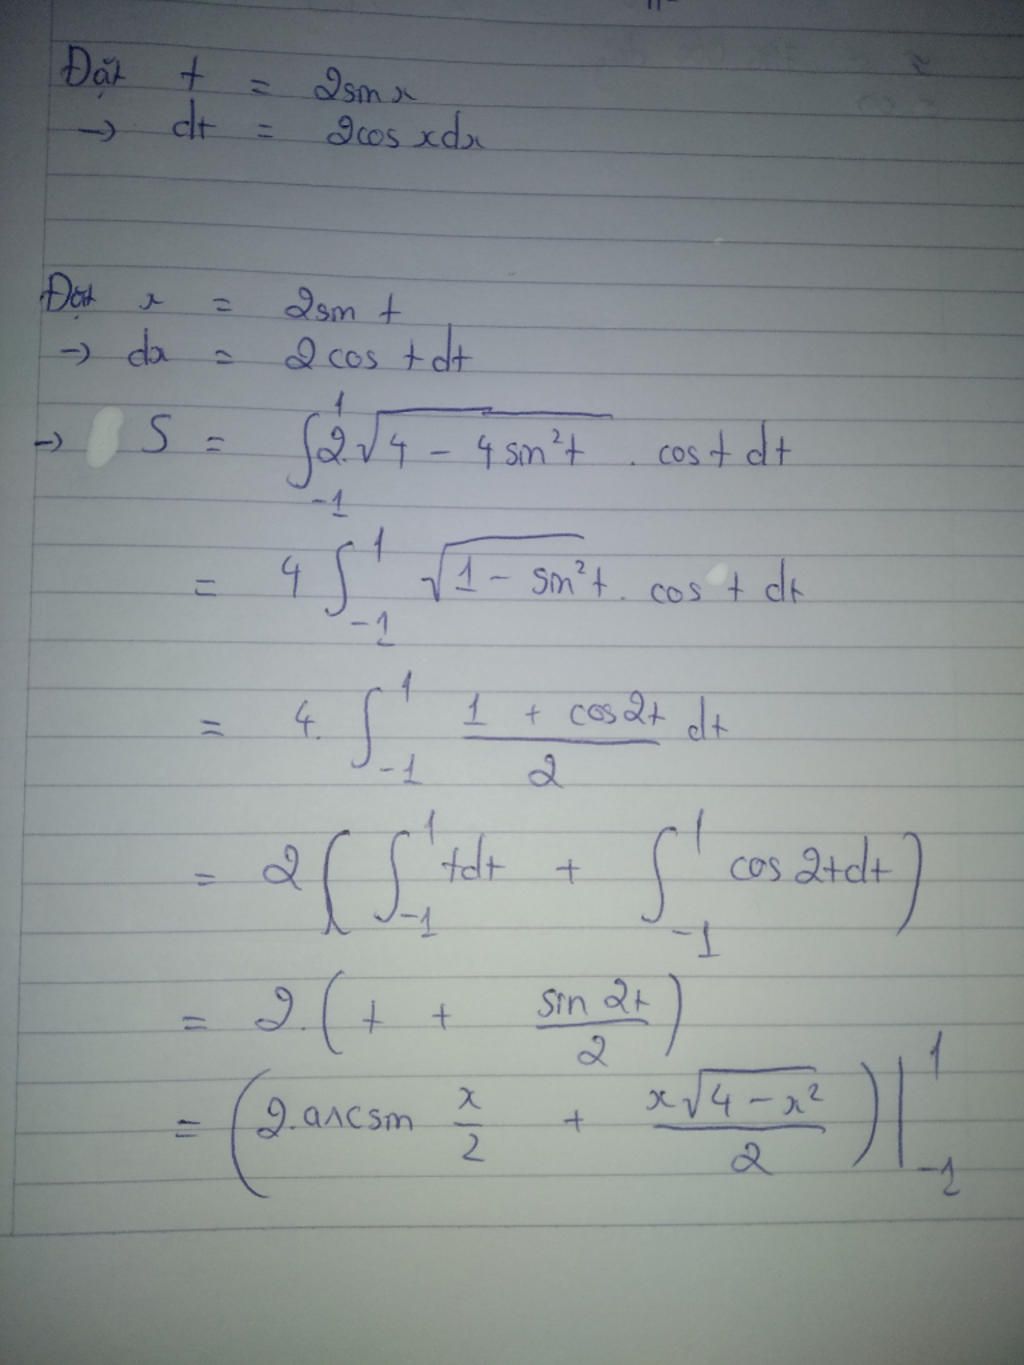 Đặt t = 2sin x
→ dt = 2cos xdx
Đặt x = 2sin t
→ dx = 2 cos t dt
→ S = ∫_{-1}^{1} 2.√(4 - 4sin²t) . cos t dt
= 4 ∫_{-1}^{1} √(1 - sin²t) . cos t dt
= 4. ∫_{-1}^{1} (1 + cos 2t)/2 dt
= 2 ( ∫_{-1}^{1} t dt + ∫_{-1}^{1} cos 2t dt )
= 2. ( t + (sin 2t)/2 )
= ( 2.arcsin x/2 + (x√(4 - x²))/2 ) |_{-1}^{1}